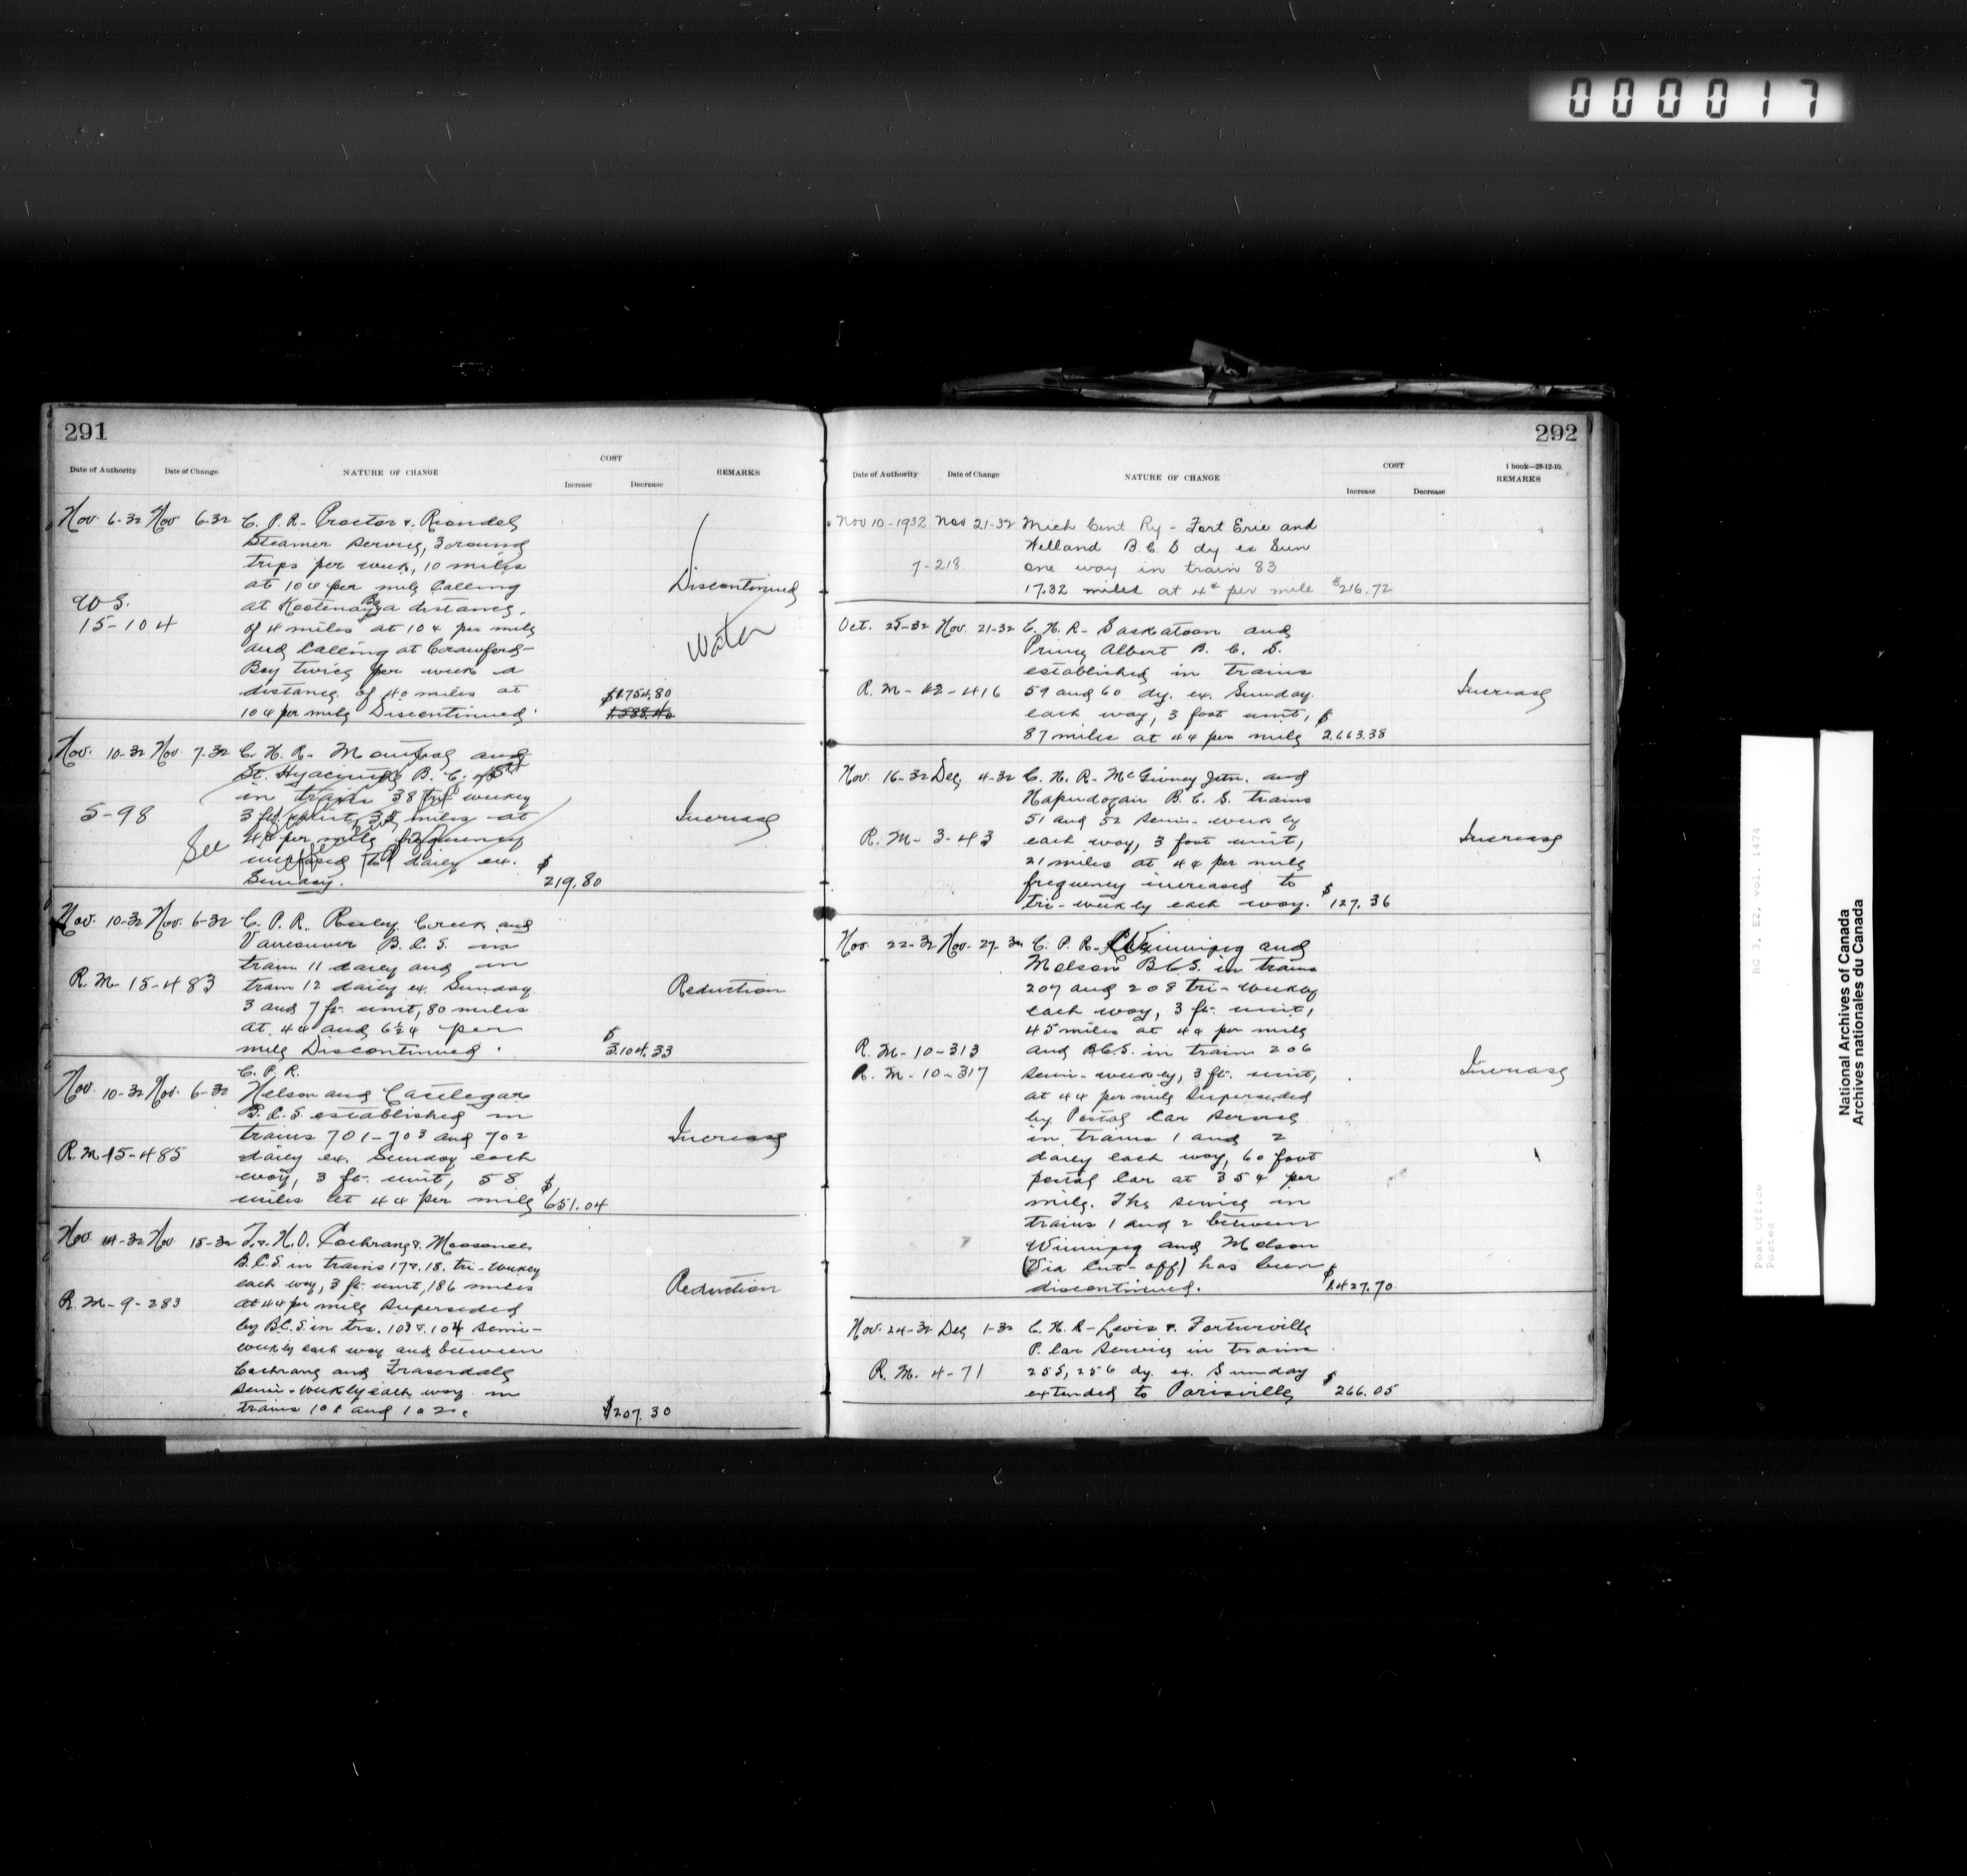 000017
291
Date of Authority Date of Change NATURE OF CHANGE COST REMARKS
Increase Decrease
Nov. 6-32 Nov 6-32 C. P. R. - Proctor & Riondel
Steamer Service, 3 round
trips per week, 10 miles
at 10¢ per mile Calling
Discontinued
at Kootenay Bay a distance
W S.
15-104
of 4 miles at 10¢ per mile
and Calling at Crawford-
Water
Bay twice per week a
distance of 40 miles at
$1.754.80
10¢ per mile Discontinued.
1.588.40
Nov. 10-32 Nov. 7-32 C. N. R. - Montreal and
St. Hyacinthe B. C. S.
in train 38 weekly
5-98
3 ft unit, miles at
Increase
See
4¢ per mile frequency
increased to daily ex.
Sunday.
$219.80
Nov. 10-32 Nov. 6-32 C. P. R. Ruby Creek and
Vancouver B. C. S. in
train 11 daily and in
R. M. 15-483
train 12 daily ex. Sunday
Reduction
3 and 7 ft. unit, 80 miles
at 4¢ and 6½¢ per
mile Discontinued.
$3.104.33
C. P. R.
Nov. 10-32 Nov. 6-32 Nelson and Castlegar
B. C. S. established in
trains 701-703 and 702
Increase
R. M. 15-485
daily ex. Sunday each
way, 3 ft. unit, 58
miles at 4¢ per mile $651.04
Nov. 14-32 Nov 15-32 T. & N. O. Cochrane & Moosonee
B.C.S. in trains 17 & 18. tri-weekly
each way, 3 ft. unit, 186 miles
Reduction
R. M-9-283
at 4¢ per mile Superseded
by B.C.S. in trs. 103 & 104 Semi-
weekly each way and between
Cochrane and Fraserdale
semi-weekly each way in
trains 101 and 102.
$207.30
292
1 book—28-12-10.
Date of Authority Date of Change NATURE OF CHANGE COST REMARKS
Increase Decrease
Nov 10-1932 Nov 21-32 Mich Cent Ry - Fort Erie and
Welland B. C. S dy ex Sun
7-218
one way in train 83
17.32 miles at 4¢ per mile $216.72
Oct. 25-32 Nov. 21-32 C. N. R - Saskatoon and
Prince Albert B. C. S.
established in trains
R. M-12-416
59 and 60 dy. ex. Sunday
Increase
each way, 3 foot unit,
87 miles at 4¢ per mile $2.663.38
Nov. 16-32 Dec. 4-32 C. N. R - McGivney Jctn. and
Napadogan B. C. S. trains
51 and 52 semi-weekly
R. M-3-43
each way, 3 foot unit,
Increase
21 miles at 4¢ per mile
frequency increased to
tri-weekly each way. $127.36
Nov. 22-32 Nov. 27-32 C. P. R - Winnipeg and
Molson B C S. in trains
207 and 208 tri-weekly
each way, 3 ft. unit,
45 miles at 4¢ per mile
R. M-10-313
and B.C.S. in train 206
R. M-10-317
semi-weekly, 3 ft. unit,
Increase
at 4¢ per mile Superseded
by Postal Car Service
in trains 1 and 2
daily each way, 60 foot
postal Car at 35¢ per
mile. The service in
trains 1 and 2 between
Winnipeg and Molson
(Via Cut-off) has been
discontinued. $1.427.70
Nov. 24-32 Dec 1-32 C. N. R - Levis & Fortierville
P. Car Service in trains
R. M. 4-71
255, 256 dy. ex. Sunday
extended to Parisville $266.05
RG 3, E2, vol. 1474
Post Office
Postes
National Archives of Canada
Archives nationales du Canada